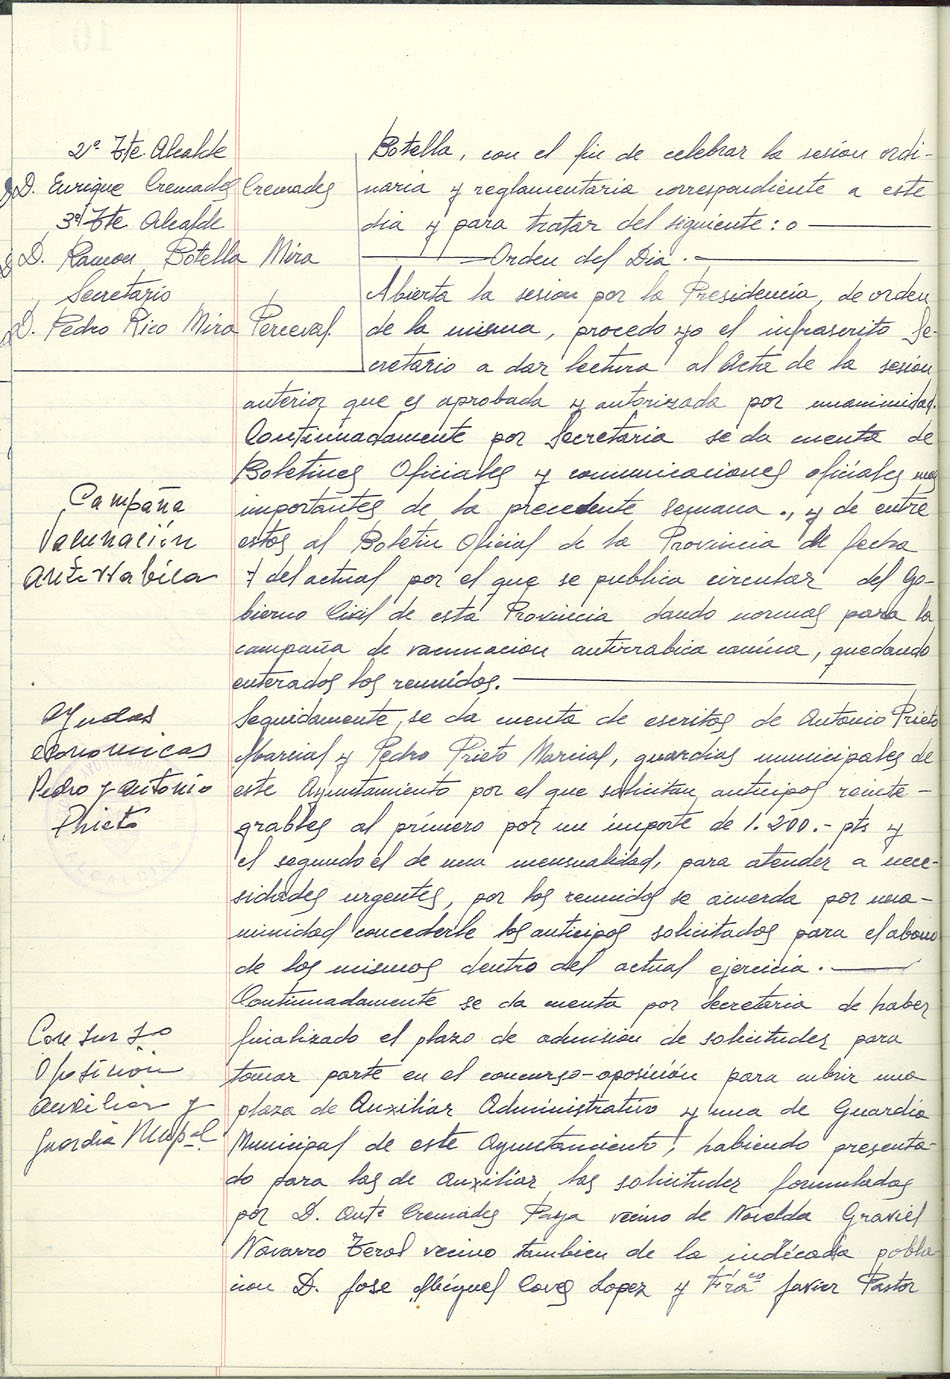 2º Tte. Alcalde
D. Enrique Cremades Cremades
3º Tte Alcalde
D. Ramon Botella Mira
Secretario
D. Pedro Rico Mira Perceval.
Botella, con el fin de celebrar la sesion ordi-
naria y reglamentaria correspondiente a este
dia y para tratar del siguiente: o
Orden del Dia.-
Abierta la sesion por la Presidencia, de orden
de la misma, procedo yo el infrascrito Se-
cretario a dar lectura al Acta de la sesión
anterior que es aprobada y autorizada por unanimidad.
Continuadamente por Secretaria se da cuenta de
Boletines Oficiales y comunicaciones oficiales mas
importantes de la precedente semana., y de entre
estos al Boletin Oficial de la Provincia de fecha
7 del actual por el que se publica circular del Go-
bierno Civil de esta Provincia dando normas para la
campaña de vacunacion antirrabica canina, quedando
enterados los reunidos.
Campaña
Vacunación
Antirrabica
Seguidamente, se da cuenta de escritos de Antonio Prieto
Marcial y Pedro Prieto Marcial, guardias municipales de
este Ayuntamiento por el que solicitan anticipos reinte-
grables al primero por un importe de 1.200.- pts y
el segundo el de una mensualidad, para atender a nece-
sidades urgentes, por los reunidos se acuerda por una-
nimidad concederle los anticipos solicitados para el abono
de los mismos dentro del actual ejercicio.
Ayudas
economicas
Pedro y Antonio
Prieto
Continuadamente se da cuenta por Secretaria de haber
finalizado el plazo de admision de solicitudes para
tomar parte en el concurso-oposición para cubrir una
plaza de Auxiliar Administrativo y una de Guardia
Municipal de este Ayuntamiento, habiendo presenta-
do para las de Auxiliar las solicitudes formuladas
por D. Antº Cremades Paya vecino de Novelda Graviel
Navarro Terol vecino tambien de la indicada pobla-
cion D. Jose Miguel Caves Lopez y Franco Javier Pastor
Concurso
Oposición
Auxiliar y
Guardia Mupal.